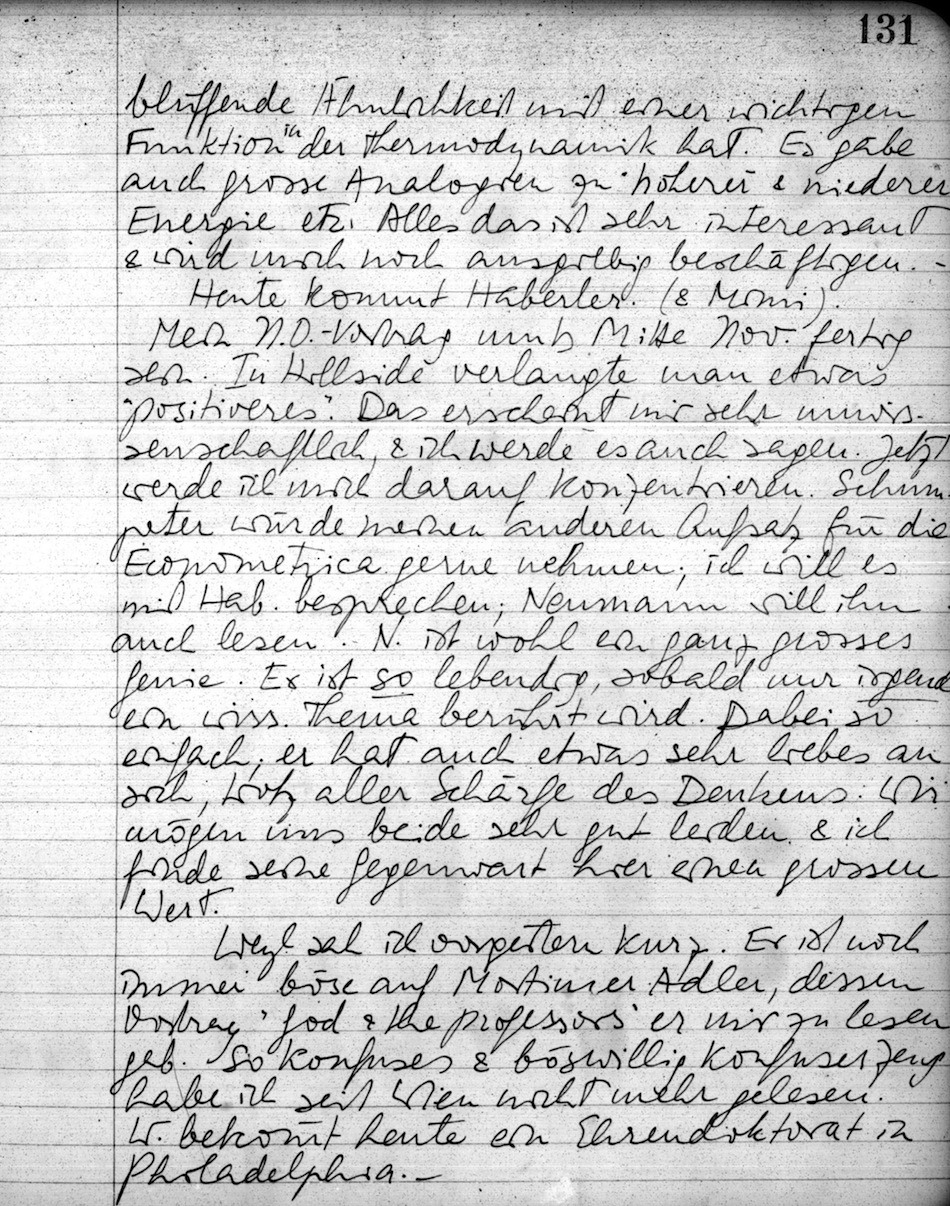 131
blüffende Ähnlichkeit mit einer wichtigen
Funktion in der Thermodynamik hat. Es gäbe
auch grosse Analogien zu höherer & niederer
Energie etc. Alles das ist sehr interessant
& wird mich noch ausgiebig beschäftigen. -
Heute kommt Haberler. (& Mimi).
Mein N.O.-Vortrag muss Mitte Nov. fertig
sein. In Hillside verlangte man etwas
"positiveres". Das erscheint mir sehr unwis-
senschaftlich, & ich werde es auch sagen. Jetzt
werde ich mich darauf konzentrieren. Schum-
peter würde meinen anderen Aufsatz für die
Econometrica gerne nehmen; ich will es
mit Hab. besprechen; Neumann will ihn
auch lesen. - N. ist wohl ein ganz grosses
Genie. Er ist so lebendig, sobald nur irgend
ein wiss. Thema berührt wird. Dabei so
einfach; er hat auch etwas sehr liebes an
sich, trotz aller Schärfe des Denkens. Wir
mögen uns beide sehr gut leiden & ich
finde seine Gegenwart hier einen grossen
Wert.
Weyl sah ich vorgestern kurz. Er ist noch
immer böse auf Mortimer Adler, dessen
Vortrag "God & the professors" er mir zu lesen
gab. So konfuses & böswillig konfuses Zeug
habe ich seit Wien nicht mehr gelesen.
W. bekommt heute ein Ehrendoktorat in
Philadelphia. -